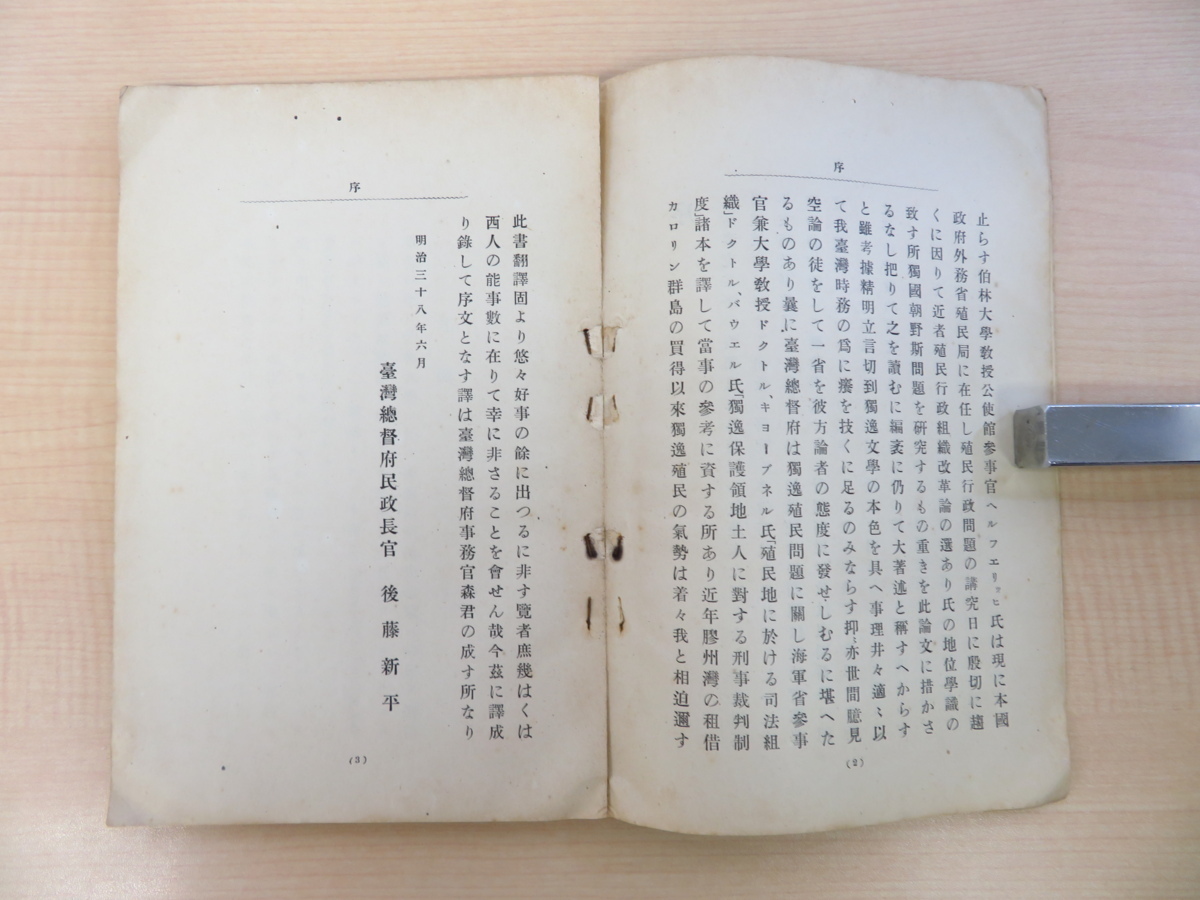 序
止らす伯林大學敎授公使館參事官ヘルフエリッヒ氏は現に本國
政府外務省殖民局に在任し殖民行政問題の講究日に殷切に趨
くに因りて近者殖民行政組織改革論の選あり氏の地位學識の
致す所獨國朝野斯問題を硏究するもの重きを此論文に措かさ
るなし把りて之を讀むに編袠に仍りて大著述と稱すへからす
と雖考據精明立言切到獨逸文學の本色を具へ事理井々適〻以
て我臺灣時務の爲に癢を技くに足るのみならす抑〻亦世間臆見
空論の徒をして一省を彼方論者の態度に發せしむるに堪へた
るものあり曩に臺灣總督府は獨逸殖民問題に關し海軍省參事
官兼大學敎授ドクトル、キヨーブネル氏「殖民地に於ける司法組
織」ドクトル、バウエル氏「獨逸保護領地土人に對する刑事裁判制
度」諸本を譯して當事の參考に資する所あり近年膠州灣の租借
カロリン群島の買得以來獨逸殖民の氣勢は着々我と相迫邇す
(2)
序
此書翻譯固より悠々好事の餘に出つるに非す覽者庶幾はくは
西人の能事數に在りて幸に非さることを會せん哉今玆に譯成
り錄して序文となす譯は臺灣總督府事務官森君の成す所なり
明治三十八年六月
臺灣總督府民政長官 後藤新平
(3)